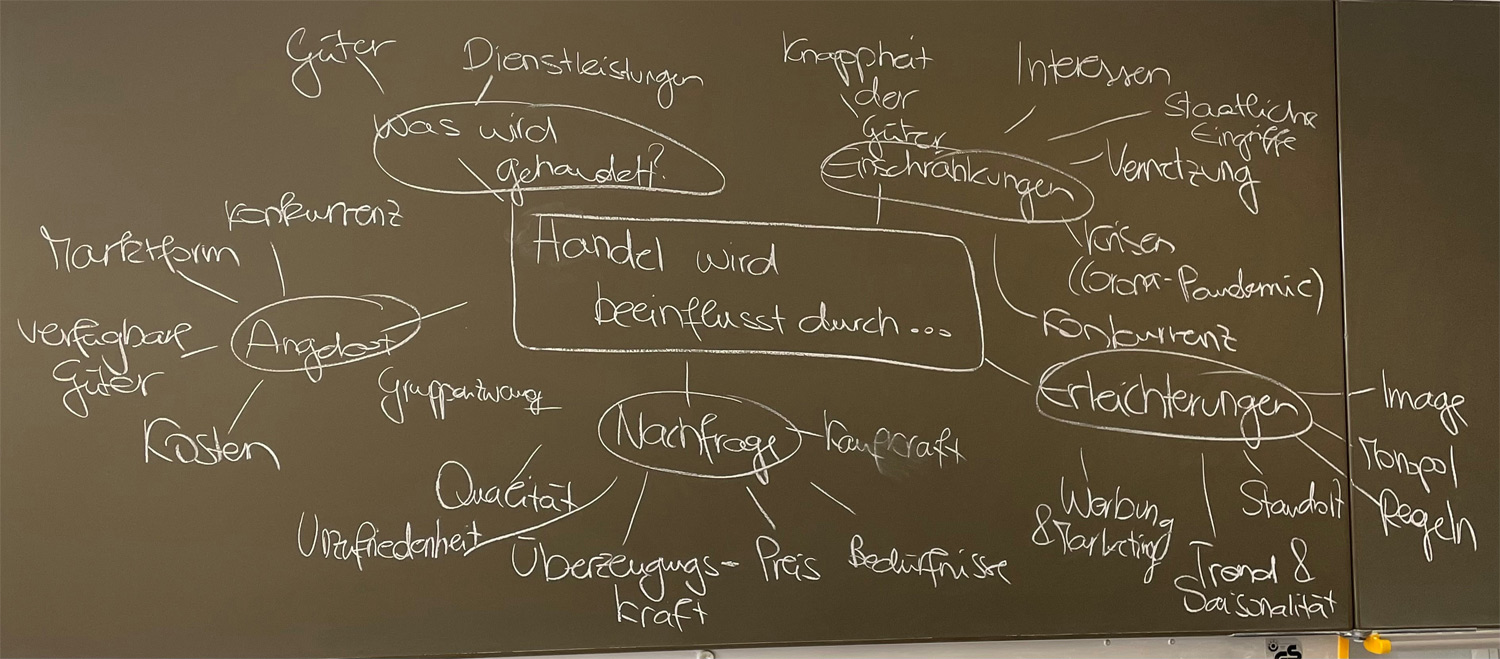 Güter
Dienstleistungen
Was wird
gehandelt?
Knappheit
der
Güter
Interessen
Staatliche
Eingriffe
Vernetzung
Einschränkungen
Krisen
(Corona-Pandemie)
Konkurrenz
Konkurrenz
Marktform
verfügbare
Güter
Angebot
Kosten
Handel wird
beeinflusst durch...
Gruppenzwang
Nachfrage
Kaufkraft
Qualität
Unzufriedenheit
Überzeugungs-
kraft
Preis
Bedürfnisse
Erleichterungen
Image
Monopol
Regeln
Standort
Werbung
& Marketing
Trend &
Saisonalität
GS